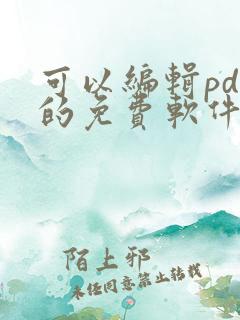 可以編輯pd
的免費軟件
陌上邪
未经同意禁止转载